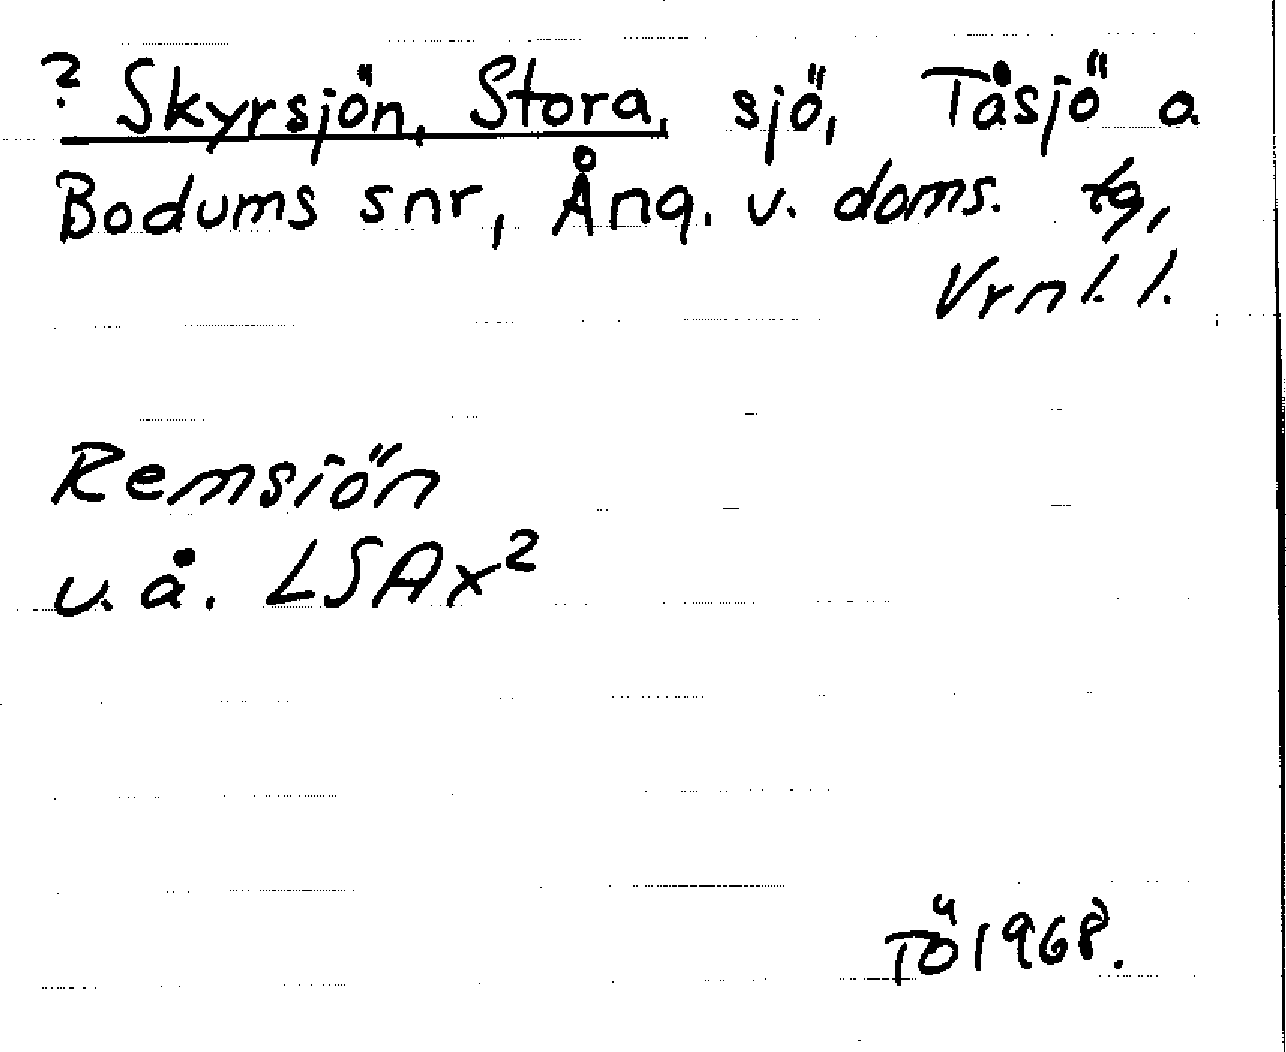 ? Skyrsjön, Stora, sjö, Tåsjö a
Bodums snr, Ång. v. doms. tg,
Vrnl. l.
Remsiön
u. å. LSAx²
TÖ 1968.